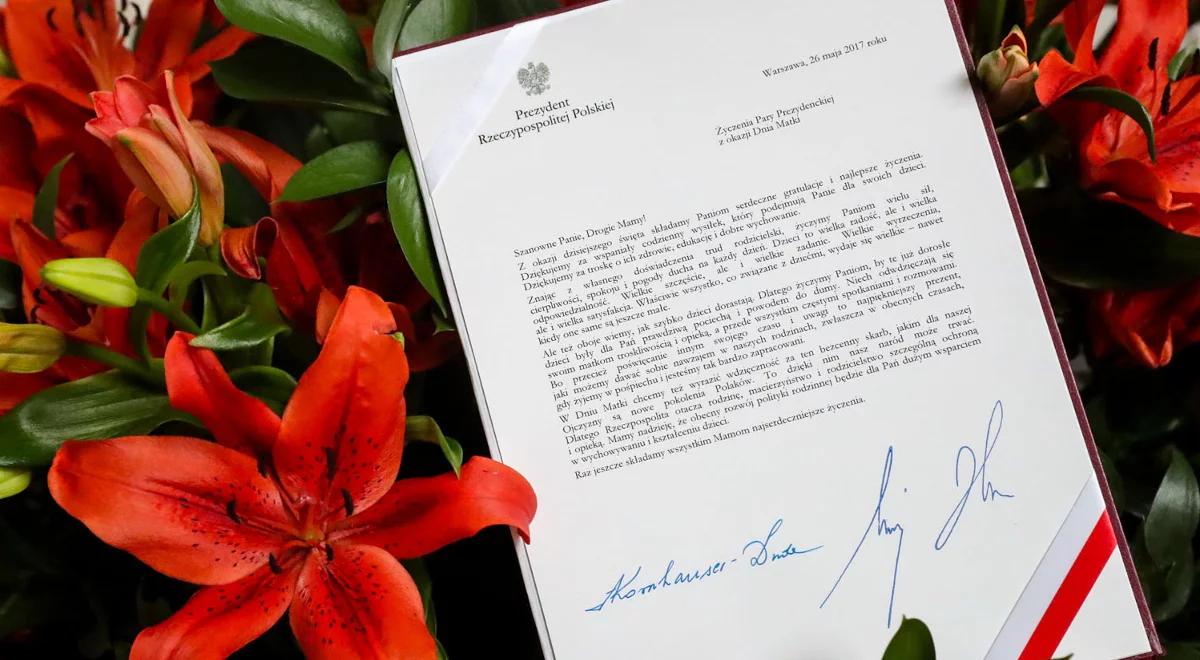 Prezydent
Rzeczypospolitej Polskiej
Warszawa, 26 maja 2017 roku
Życzenia Pary Prezydenckiej
z okazji Dnia Matki
Szanowne Panie, Drogie Mamy!
Z okazji dzisiejszego święta składamy Paniom serdeczne gratulacje i najlepsze życzenia.
Dziękujemy za wspaniały codzienny wysiłek, który podejmują Panie dla swoich dzieci.
Dziękujemy za troskę o ich zdrowie, edukację i dobre wychowanie.
Znając z własnego doświadczenia trud rodzicielski, życzymy Paniom wielu sił,
cierpliwości, spokoju i pogody ducha na każdy dzień. Dzieci to wielka radość, ale i wielka
odpowiedzialność. Wielkie szczęście, ale i wielkie zadanie. Wielkie wyrzeczenia,
ale i wielka satysfakcja. Właściwie wszystko, co związane z dziećmi, wydaje się wielkie – nawet
kiedy one same są jeszcze małe.
Ale też oboje wiemy, jak szybko dzieci dorastają. Dlatego życzymy Paniom, by te już dorosłe
dzieci były dla Pań prawdziwą pociechą i powodem do dumy. Niech odwdzięczają się
swoim matkom troskliwością i opieką, a przede wszystkim częstymi spotkaniami i rozmowami.
Bo przecież poświęcanie innym swojego czasu i uwagi to najpiękniejszy prezent,
jaki możemy dawać sobie nawzajem w naszych rodzinach, zwłaszcza w obecnych czasach,
gdy żyjemy w pośpiechu i jesteśmy tak bardzo zapracowani.
W Dniu Matki chcemy też wyrazić wdzięczność za ten bezcenny skarb, jakim dla naszej
Ojczyzny są nowe pokolenia Polaków. To dzięki nim nasz naród może trwać.
Dlatego Rzeczpospolita otacza rodzinę, macierzyństwo i rodzicielstwo szczególną ochroną
i opieką. Mamy nadzieję, że obecny rozwój polityki rodzinnej będzie dla Pań dużym wsparciem
w wychowywaniu i kształceniu dzieci.
Raz jeszcze składamy wszystkim Mamom najserdeczniejsze życzenia.
Kornhauser-Duda